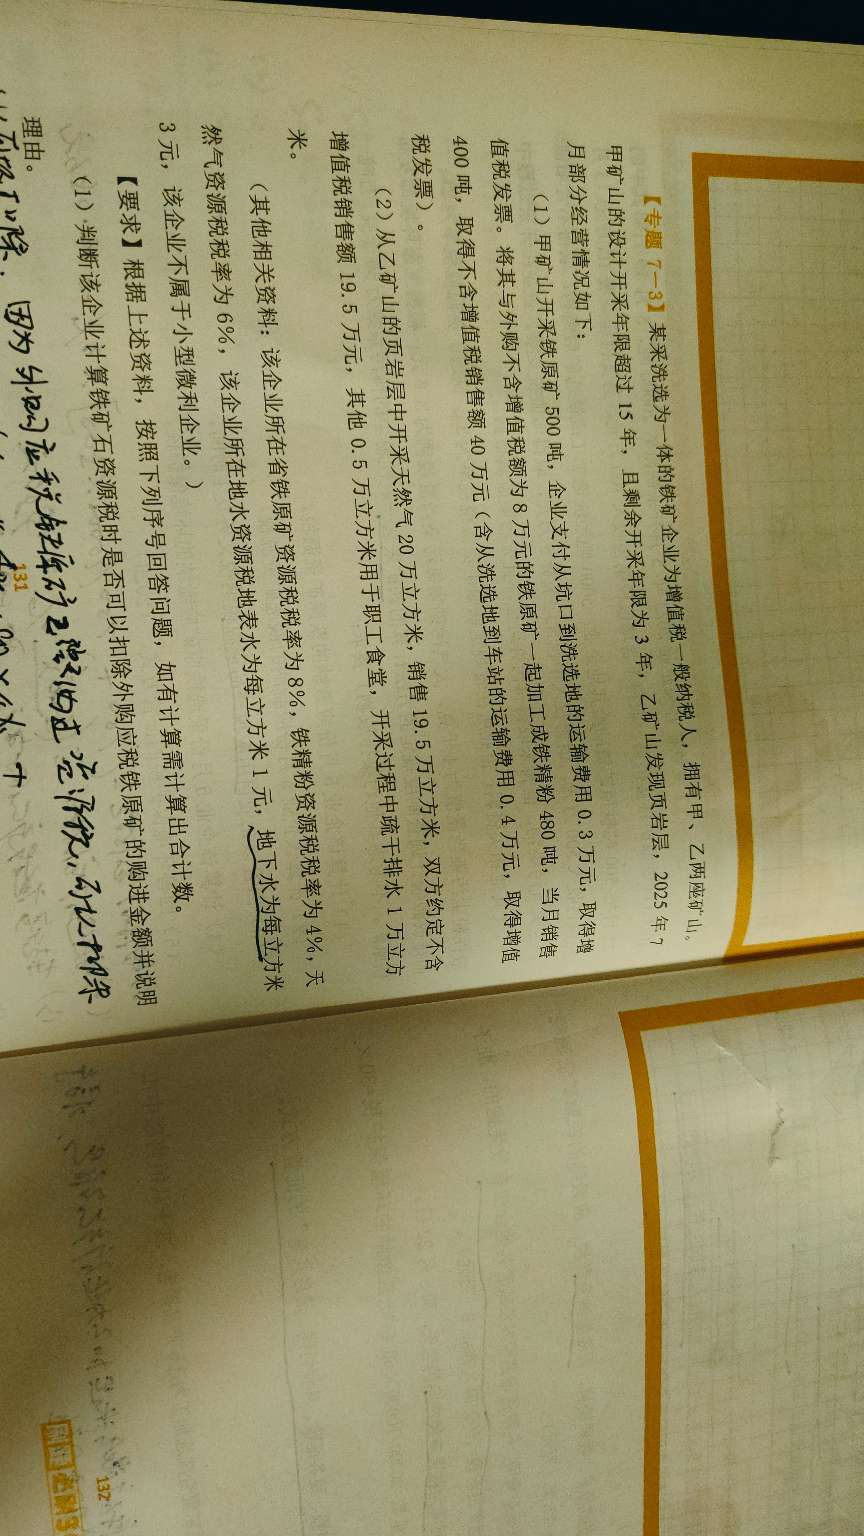 【专题 7—3】某采洗选为一体的铁矿企业为增值税一般纳税人，拥有甲、乙两座矿山。
甲矿山的设计开采年限超过 15 年，且剩余开采年限为 3 年，乙矿山发现页岩层，2025 年 7
月部分经营情况如下：
（1）甲矿山开采铁原矿 500 吨，企业支付从坑口到洗选地的运输费用 0.3 万元，取得增
值税发票。将其与外购不含增值税额为 8 万元的铁原矿一起加工成铁精粉 480 吨，当月销售
400 吨，取得不含增值税销售额 40 万元（含从洗选地到车站的运输费用 0.4 万元，取得增值
税发票）。
（2）从乙矿山的页岩层中开采天然气 20 万立方米，销售 19.5 万立方米，双方约定不含
增值税销售额 19.5 万元，其他 0.5 万立方米用于职工食堂，开采过程中疏干排水 1 万立方
米。
（其他相关资料：该企业所在省铁原矿资源税税率为 8%，铁精粉资源税税率为 4%，天
然气资源税税率为 6%，该企业所在地水资源税地表水为每立方米 1 元，地下水为每立方米
3 元，该企业不属于小型微利企业。）
【要求】根据上述资料，按照下列序号回答问题，如有计算需计算出合计数。
（1）判断该企业计算铁矿石资源税时是否可以扣除外购应税铁原矿的购进金额并说明
理由。
可以扣除；因为外购应税铁原矿已缴纳过资源税，可以扣除
131
132